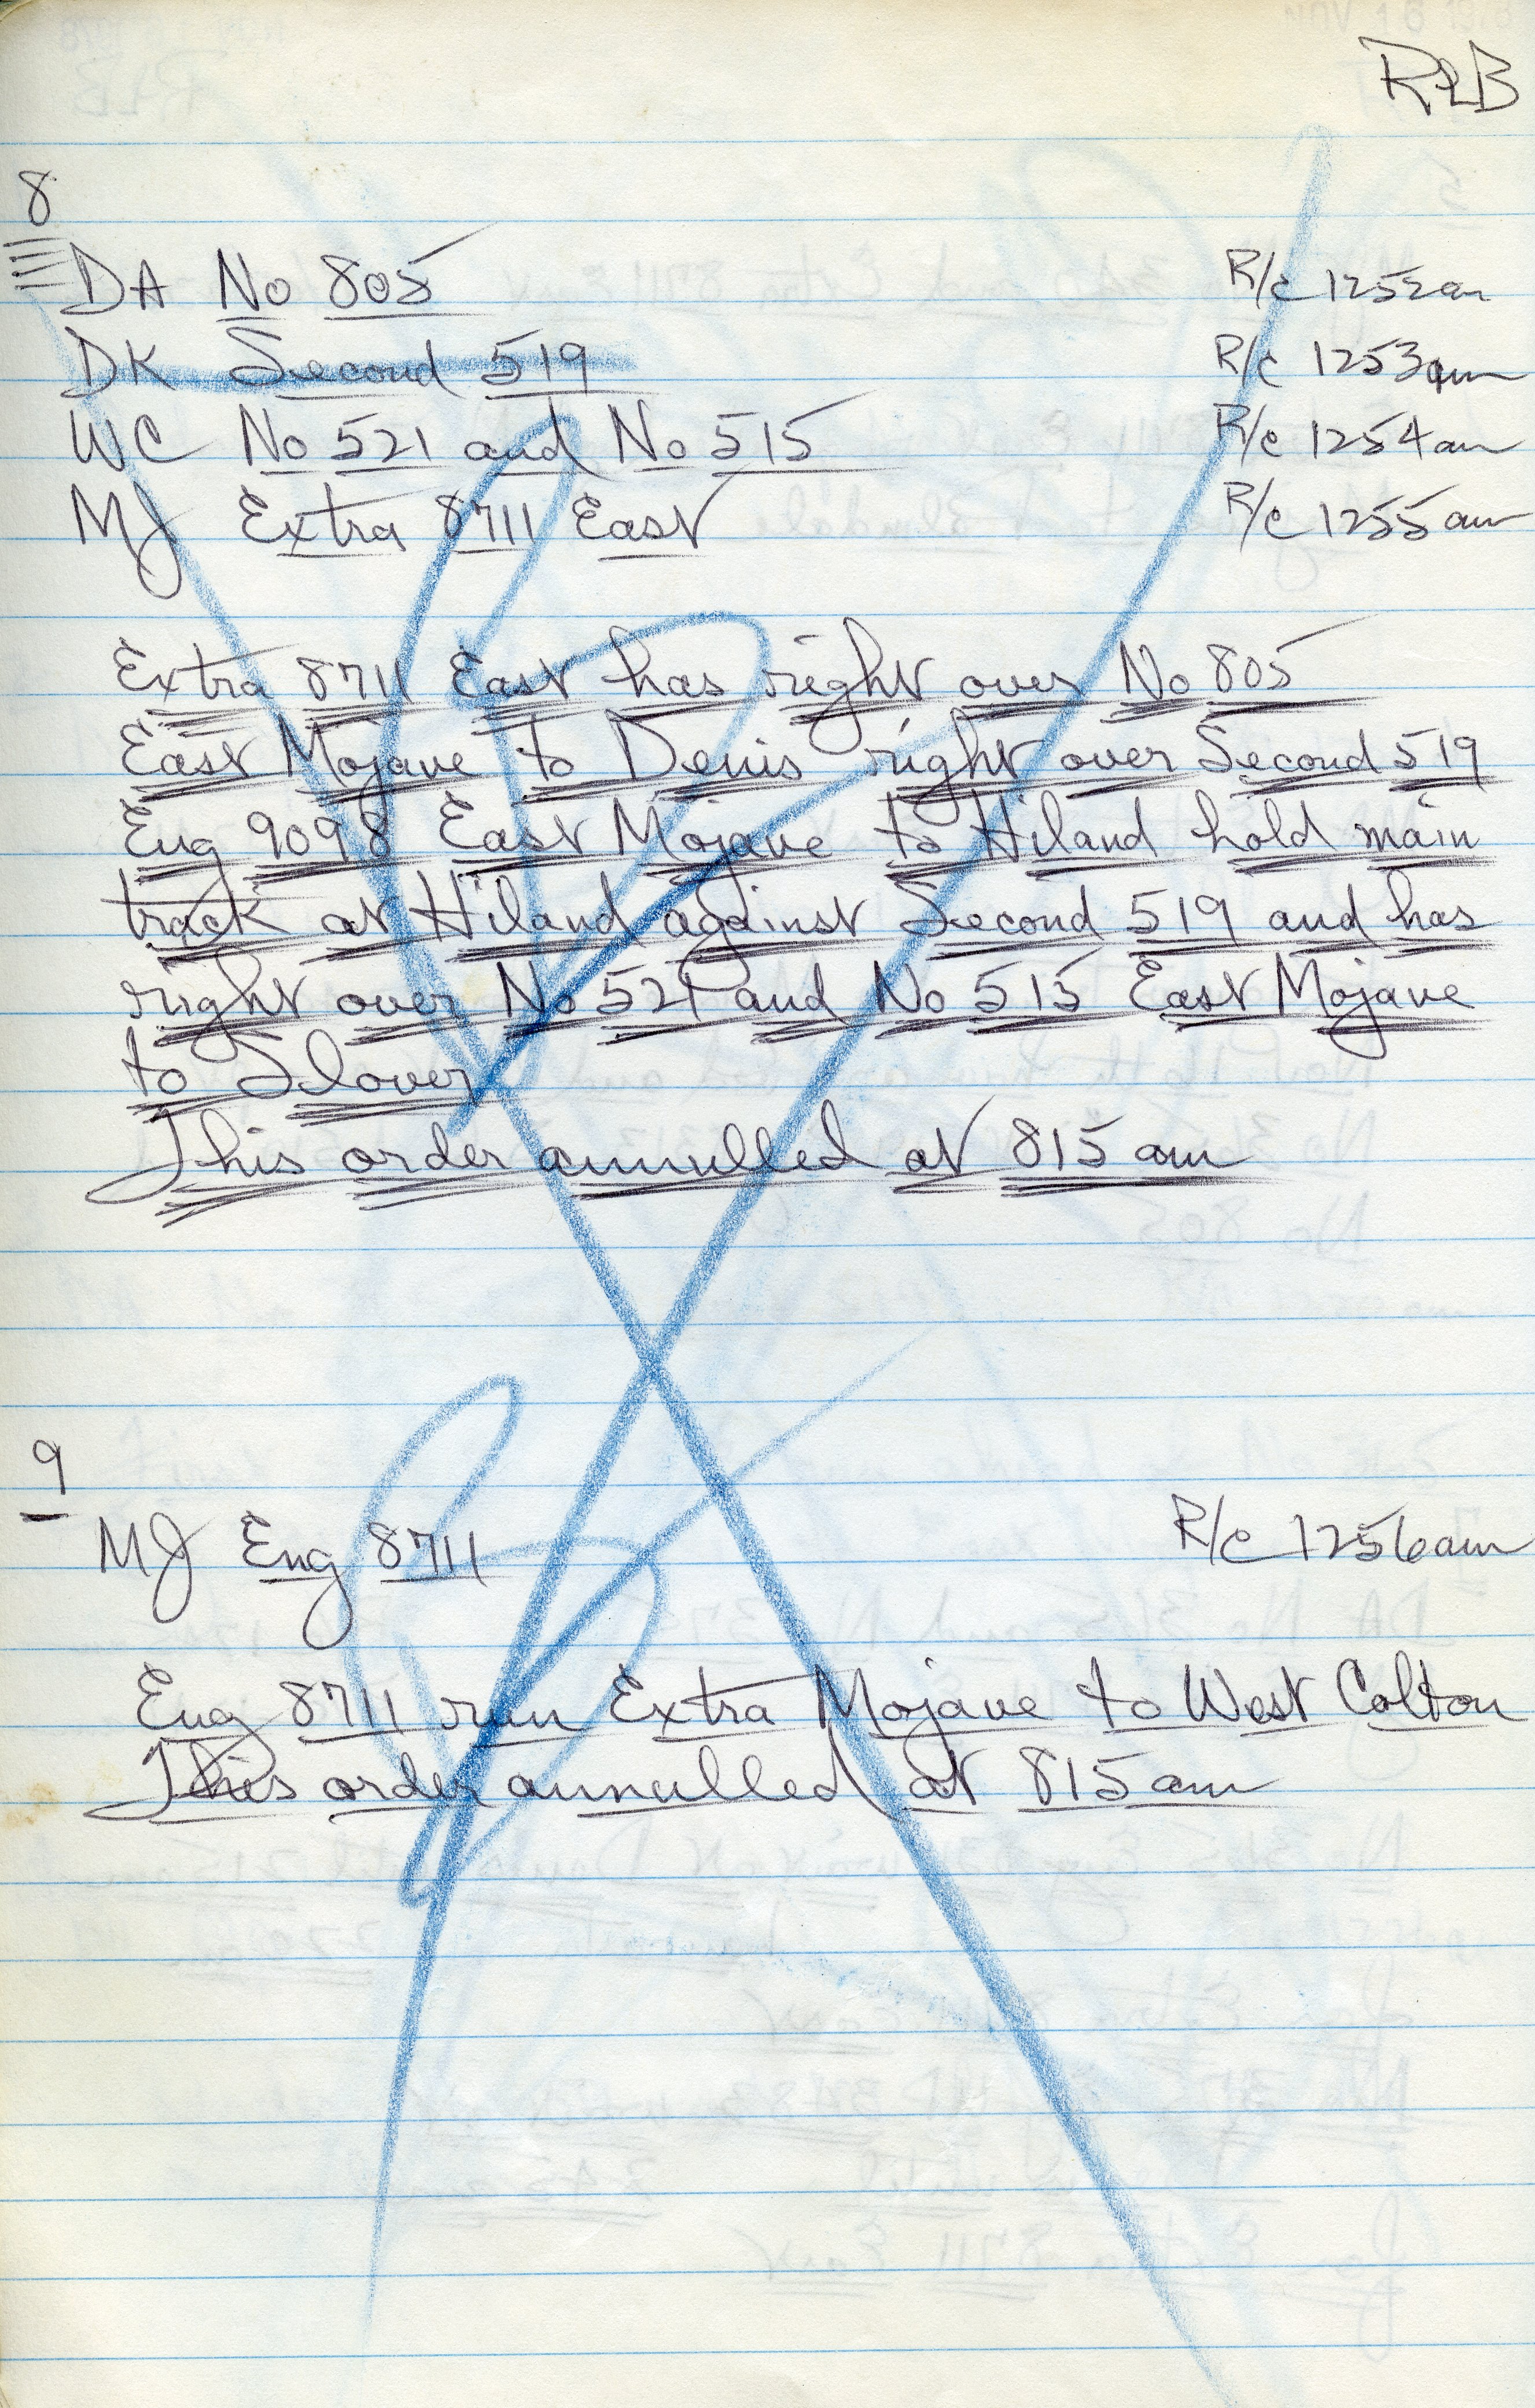 NOV 16 19
RLB
8
DA No 805 R/c 1252am
DK Second 519 R/c 1253am
WC No 521 and No 515 R/c 1254am
MJ Extra 8711 East R/c 1255am
Extra 8711 East has right over No 805
East Mojave to Denis right over Second 519
Eng 9098 East Mojave to Hiland hold main
track at Hiland against Second 519 and has
right over No 521 and No 515 East Mojave
to Slover
This order annulled at 815 am
9
MJ Eng 8711 R/c 1256am
Eng 8711 run Extra Mojave to West Colton
This order annulled at 815 am